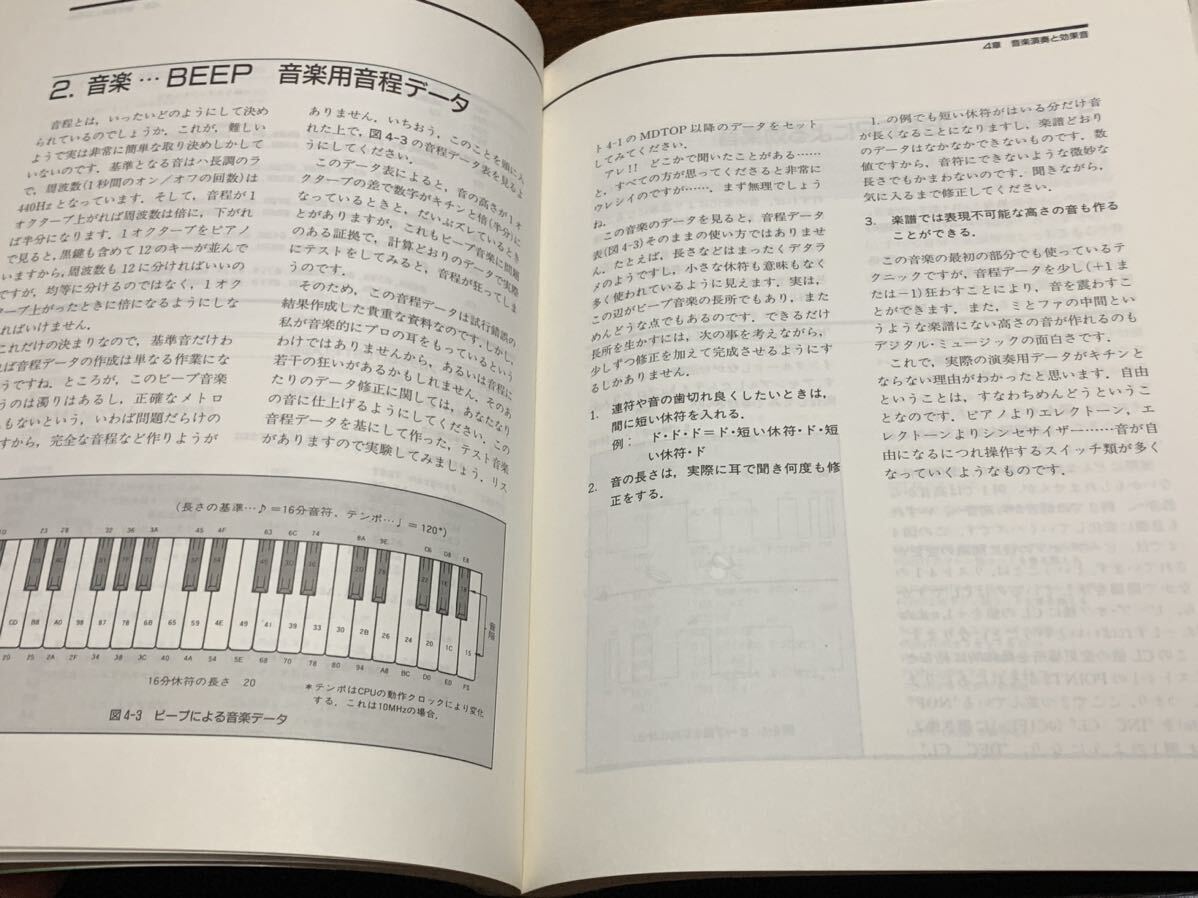 2. 音楽…BEEP 音楽用音程データ
音程とは，いったいどのようにして決め
られているのでしょうか．これが，難しい
ようで実は非常に簡単な取り決めしかして
いないのです．基準となる音はハ長調のラ
で，周波数(1秒間のオン／オフの回数)は
440Hzとなっています．そして，音程が1
オクターブ上がれば周波数は倍に，下がれ
ば半分になります．1オクターブをピアノ
で見ると，黒鍵も含めて12のキーが並んで
いますから，周波数も12に分ければいいの
ですが，均等に分けるのではなく，1オク
ターブ上がったときに倍になるようにしな
ればいけません．
これだけの決まりなので，基準音だけわ
ば音程データの作成は単なる作業にな
うですね．ところが，このビープ音楽
うのは濁りはあるし，正確なメトロ
もないという，いわば問題だらけの
すから，完全な音程など作りようが
ありません．いちおう，このことを頭に入
れた上で，図4-3の音程データ表を見るよ
うにしてください．
このデータ表によると，音の高さが1オ
クターブの差で数字がキチンと倍(半分)に
なっているときと，だいぶズレているとき
とがありますが，これもビープ音楽に問題
のある証拠で，計算どおりのデータで実際
にテストをしてみると，音程が狂ってしま
うのです．
そのため，この音程データは試行錯誤の
結果作成した貴重な資料なのです．しかし，
私が音楽的にプロの耳をもっているという
わけではありませんから，あるいは音程に
若干の狂いがあるかもしれません．そのあ
たりのデータ修正に関しては，あなたなり
の音に仕上げるようにしてください．この
音程データを基にして作った，テスト音楽
がありますので実験してみましょう．リス
(長さの基準…♪＝16分音符，テンポ…♩＝120*)
23 28 32 36 3A 45 63 6C 74 8A 9E C6 D8 E8
CD B8 A0 98 87 71 65 59 4F 49 41 39 30 2B 26 20 1C 15
音階
20 25 2A 2F 34 38 3C 4A 54 5E 68 70 78 84 94 A8 BC D0 E0 F5
16分休符の長さ 20
＊テンポはCPUの動作クロックにより変化
する．これは10MHzの場合．
図4-3 ビープによる音楽データ
4章 音楽演奏と効果音
ト4-1のMDTOP以降のデータをセット
してみてください．
アレ!! どこかで聞いたことがある……
と，すべての方が思ってくださると非常に
ウレシイのですが……．まず無理でしょう
ね．
この音楽のデータを見ると，音程データ
表(図4-3)そのままの使い方ではありませ
ん．たとえば，長さなどはまったくデタラ
メのようですし，小さな休符も意味もなく
多く使われているように見えます．実は，
この辺がビープ音楽の長所でもあり，また
めんどうな点でもあるのです．できるだけ
長所を生かすには，次の事を考えながら，
少しずつ修正を加えて完成させるようにす
るしかありません．
1. 連符や音の歯切れ良くしたいときは，
間に短い休符を入れる．
例： ド・ド・ド＝ド・短い休符・ド・短
い休符・ド
2. 音の長さは，実際に耳で聞き何度も修
正をする．
1．の例でも短い休符がはいる分だけ音
が長くなることになりますし，楽譜どおり
のデータはなかなかできないものです．数
値ですから，音符にできないような微妙な
長さでもかまわないのです．聞きながら，
気に入るまで修正してください．
3. 楽譜では表現不可能な高さの音も作る
ことができる．
この音楽の最初の部分でも使っているテ
クニックですが，音程データを少し(＋1ま
たは−1)狂わすことにより，音を震わすこ
とができます．また，ミとファの中間とい
うような楽譜にない高さの音が作れるのも
デジタル・ミュージックの面白さです．
これで，実際の演奏用データがキチンと
ならない理由がわかったと思います．自由
ということは，すなわちめんどうというこ
となのです．ピアノよりエレクトーン，エ
レクトーンよりシンセサイザー……音が自
由になるにつれ操作するスイッチ類が多く
なっていくようなものです．